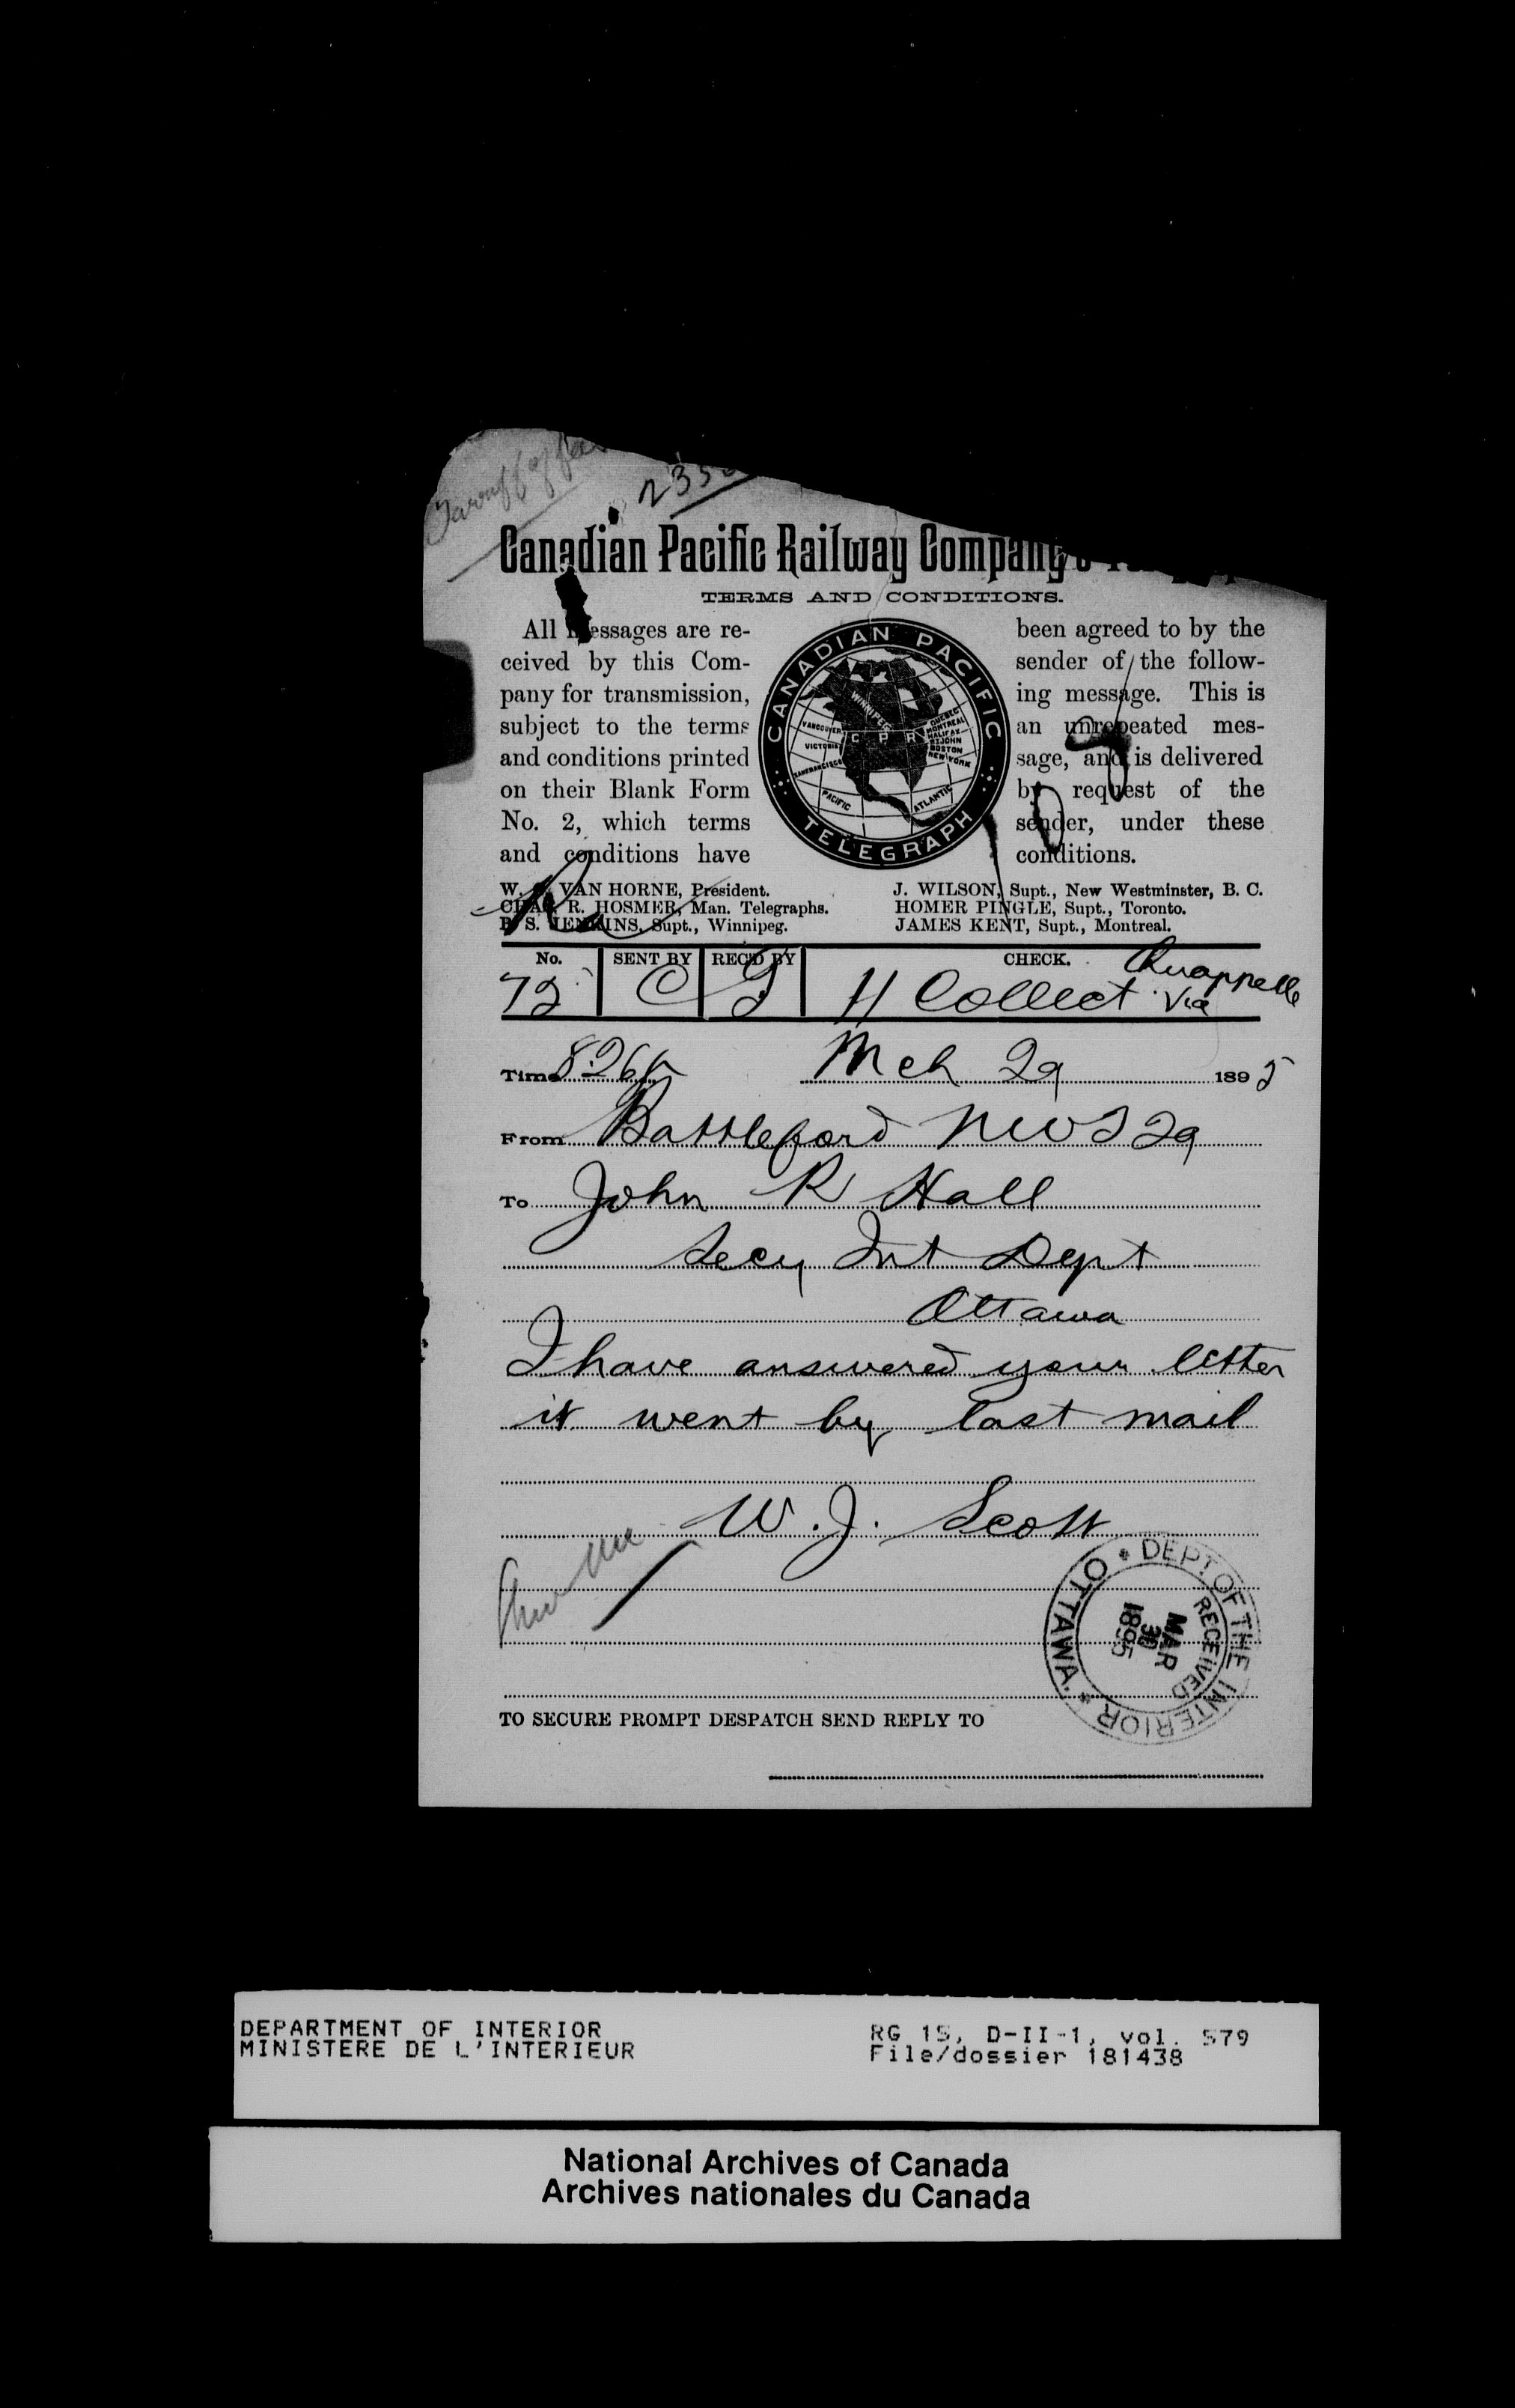 235
Canadian Pacific Railway Company's
TERMS AND CONDITIONS.
All messages are re-
ceived by this Com-
pany for transmission,
subject to the terms
and conditions printed
on their Blank Form
No. 2, which terms
and conditions have
CANADIAN PACIFIC
TELEGRAPH
WINNIPEG
VANCOUVER
VICTORIA
SANFRANCISCO
C P R
QUEBEC
MONTREAL
HALIFAX
ST JOHN
BOSTON
NEW YORK
PACIFIC
ATLANTIC
been agreed to by the
sender of the follow-
ing message. This is
an unrepeated mes-
sage, and is delivered
by request of the
sender, under these
conditions.
W. VAN HORNE, President.
CHAS R. HOSMER, Man. Telegraphs.
B. S. JENKINS, Supt., Winnipeg.
J. WILSON, Supt., New Westminster, B. C.
HOMER PINGLE, Supt., Toronto.
JAMES KENT, Supt., Montreal.
No. SENT BY REC'D BY CHECK.
72 C 11 Collect Via Quappelle
Time 8.26p Mch 29 1895
From Battleford NWT 29
To John R Hall
Secy Int Dept
Ottawa
I have answered your letter
it went by last mail
W. J. Scott
DEPT OF THE INTERIOR
OTTAWA.
RECEIVED
MAR
30
1895
TO SECURE PROMPT DESPATCH SEND REPLY TO
DEPARTMENT OF INTERIOR
MINISTERE DE L'INTERIEUR
RG 15, D-II-1, vol. 579
File/dossier 181438
National Archives of Canada
Archives nationales du Canada